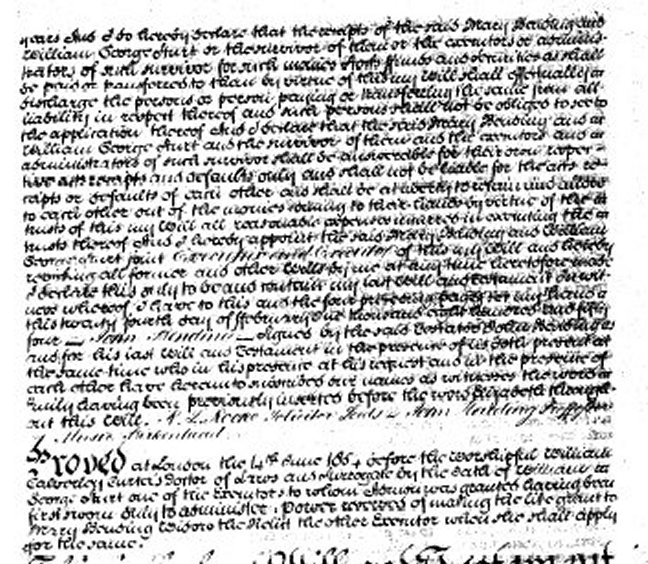 years And I do hereby declare that the receipts of the said Mary Bending and
William George Hurt or the survivor of them or the executors or adminis-
trators of such survivor for such monies stocks funds and securities as shall
be paid or transferred to them by virtue of this my Will shall effectually
discharge the persons or person paying or transferring the same from all
liability in respect thereof and such persons shall not be obliged to see to
the application thereof And I declare that the said Mary Bending and
William George Hurt and the survivor of them and the executors and
administrators of such survivor shall be answerable for their own respec-
tive acts receipts and defaults only and shall not be liable for the acts re-
ceipts or defaults of each other and shall be at liberty to retain and allow
to each other out of the monies coming to their hands by virtue of the
trusts of this my Will all reasonable expenses incurred in executing the
trusts thereof And I hereby appoint the said Mary Bending and William
George Hurt joint Executrix and Executor of this my Will and hereby
revoking all former and other Wills by me at any time heretofore made
I declare this only to be and contain my last Will and Testament In wit-
ness whereof I have to this and the four preceding pages set my hand
this twenty fourth day of February One thousand eight hundred and fifty
four — John Bending — Signed by the said Testator John Bending as
and for his last Will and Testament in the presence of us both present at
the same time who in his presence at his request and in the presence of
each other have hereunto subscribed our names as witnesses the word
having been previously inserted before the word Elizabeth through-
out this Will.
Music Birkenhead
Proved at London the 14th June 1854 before the Worshipful William
Calverley Curteis Doctor of Laws and Surrogate by the Oath of William
George Hurt one of the Executors to whom Admon was granted having been
first sworn duly to administer. Power reserved of making the like grant to
Mary Bending Widow the Relict the other Executor when she shall apply
for the same.